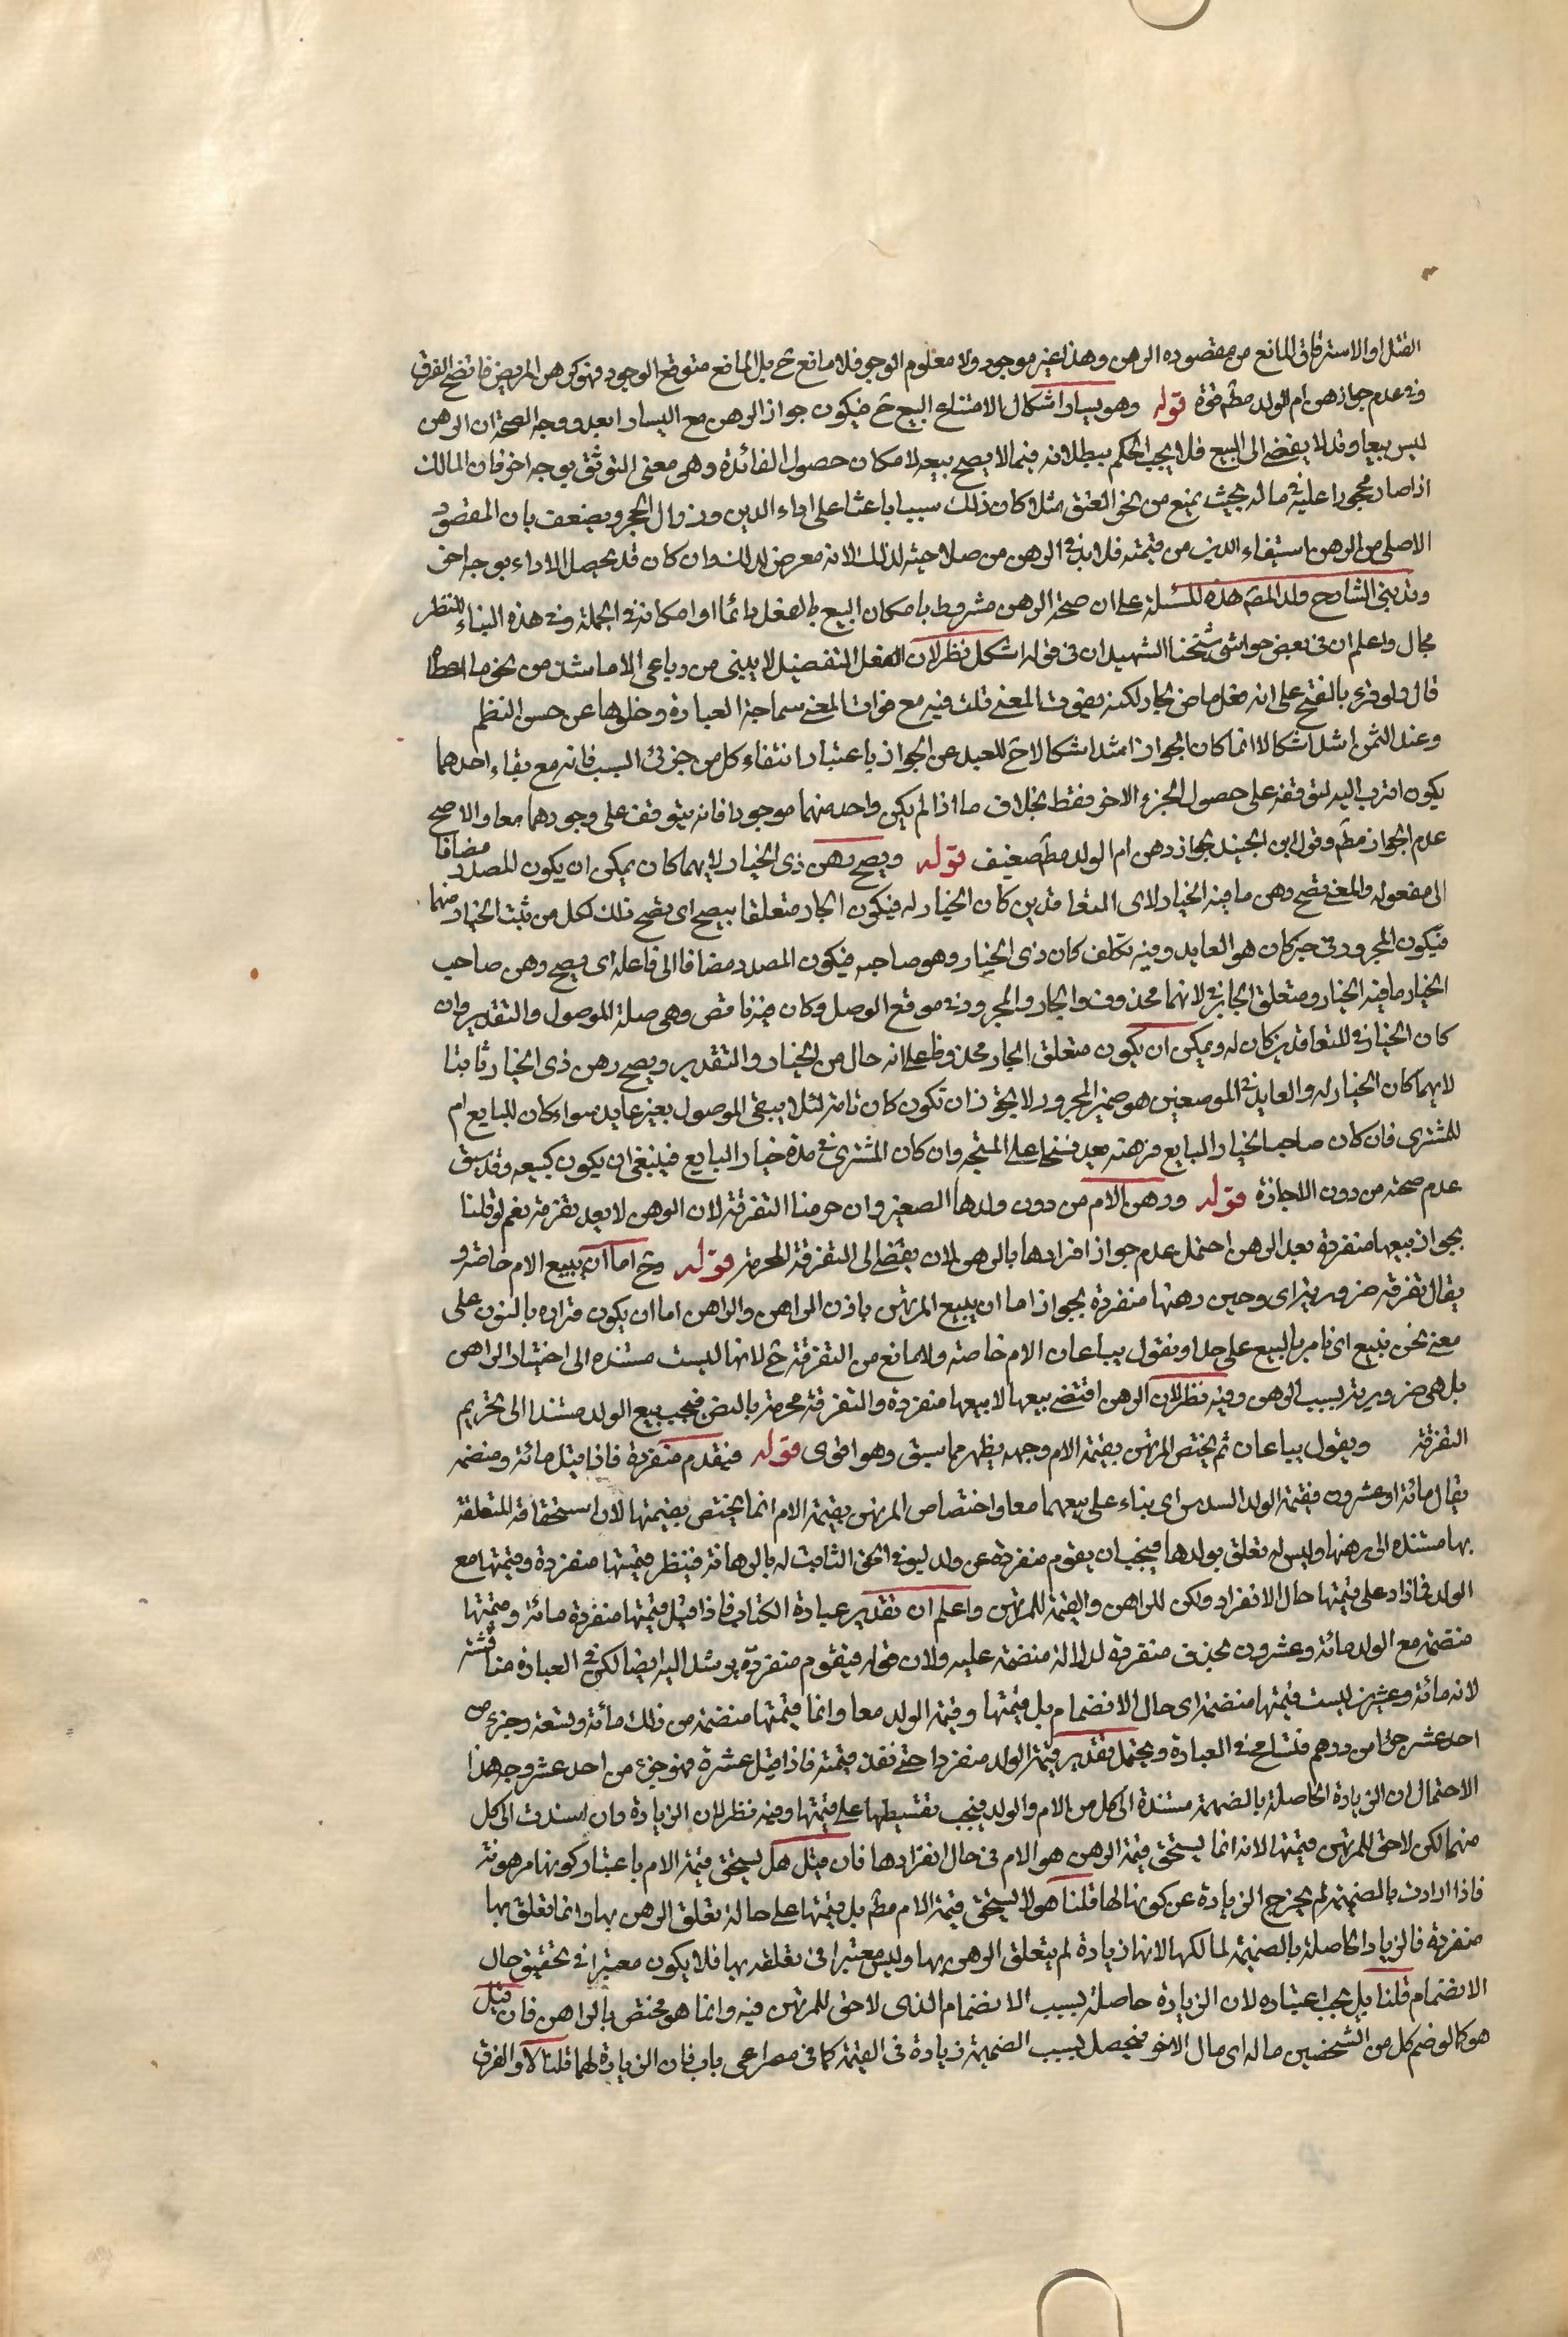 القتل او الاسترقاق المانع من مقصوده الرهن وهذا غير موجود ولا معلوم الوجود فلا مانع ح بل المانع متوقع الوجود فهو كرهن المريض فاتضح الفرق
وفى عدم جواز رهن ام الولد مطم قوة قوله وهو يسار اشكال لامتناع البيع ح فيكون جواز الرهن مع اليسار ابعد ووجه الصحة ان الرهن
ليس بيعا وقد لا يفضى الى البيع فلا يجب الحكم ببطلانه فيما لا يصح بيعه لامكان حصول الفائدة وهى معنى التوثق بوجه اخر فان المالك
اذا صار محجورا عليه فى ماله بحيث يمنع من نحو العتق مثلا كان ذلك سببا باعثا على اداء الدين وزوال الحجر ويضعف بان المقصود
الاصلى من الرهن استيفاء الدين من قيمته فلا بد فى الرهن من صلاحيته لذلك لانه معرض لذلك وان كان قد يحصل الاداء بوجه اخر
وقد بنى الشارح ولد المصم هذه المسئلة على ان صحة الرهن مشروط بامكان البيع بالفعل دائما او امكانه فى الجملة وفى هذه البناء للنظر
مجال واعلم ان فى بعض حواشى شيخنا الشهيد ان فى قوله اشكل نظر لان افعل التفضيل لا يبنى من رباعى الا ما شذ من نحو ما اعطاه
قال ولو قرئ بالفتح على انه فعل ماض لجاز لكنه يفوت المعنى قلت فيه مع فوات المعنى سماجة العبارة وخلوها عن حسن النظم
وعند الثمن اشد اشكالا انما كان الجواز اشد اشكالا ح للبعد عن الجواز باعتبار انتفاء كل من جزئى السبب فانه مع بقاء احدهما
يكون اقرب اليه لتوقفه على حصول الجزء الاخر فقط بخلاف ما اذا لم يكن واحد منهما موجودا فانه يتوقف على وجودهما معا والاصح
عدم الجواز مطم وقول ابن الجنيد بجواز رهن ام الولد مطم ضعيف قوله ويصح رهن ذى الخيار لايهما كان يمكن ان يكون المصدر مضافا
الى مفعوله والمعنى يصح رهن ما فيه الخيار لاى المتعاقدين كان الخيار له فيكون الجار متعلقا بيصح اى يصح ذلك لكل من ثبت الخيار منهما
فيكون المجرور فى خبر كان هو العايد وفيه تكلف كان ذى الخيار وهو صاحبه فيكون المصدر مضافا الى فاعله اى يصح رهن صاحب
الخيار ما فيه الخيار ومتعلق الجار فى لانهما محذوف والجار والمجرور فى موقع الوصل وكان فيه ناقص وهى صلة الموصول والتقدير وان
كان الخيار فى للمتعاقدين كان له ويمكن ان يكون متعلق الجار محذوفا على انه حال من الخيار والتقدير ويصح رهن ذى الخيار ثابتا
لايهما كان الخيار له والعايد فى الموضعين هو ضمير المجرور لا يجوز ان تكون كان تامة لئلا يبقى الموصول بغير عايد سواء كان للبايع ام
للمشترى فان كان صاحب الخيار البايع فرهنه يعد فسخا على المتجه وان كان المشترى فى مدة خيار البايع فينبغى ان يكون كبيعه وقد سبق
عدم صحته من دون الاجازة قوله ورهن الام من دون ولدها الصغير وان حرمنا التفرقة لان الرهن لا يعد تفرقة نعم لو قلنا
بجواز بيعها منفردة بعد الرهن احتمل عدم جواز افرادها بالرهن لان يفضى الى التفرقة المحرمة قوله وح اما ان يبيع الام خاصة و
يقال تفرقة ضرورية اى وحين رهنها منفردة بجواز اما ان يبيع المرتهن باذن الراهن والراهن اما ان يكون قراءه بالنون على
معنى نحن نبيع اى نامر بالبيع على حد او نقول يباعان الام خاصة ولا مانع من التفرقة ح لانها ليست مستنده الى اختيار الراهن
بل هى ضرورية بسبب الرهن وفيه نظر لان الرهن اقتضى بيعها لا بيعها منفردة والتفرقة محرمة بالنص فيجب بيع الولد مستندا الى تحريم
التفرقة ويقول يباعان ثم يختص المرتهن بقيمة الام وجهه يظهر مما سبق وهو اقوى قوله فيقدم منفردة فاذا قيل مائة ومنضمه
يقال مائة وعشرون فقيمة الولد السدس اى بناء على بيعهما معا واختصاص المرتهن بقيمة الام انما يختص بقيمتها لان استحقاقه المتعلقة
بها مستنده الى رهنها وليس له تعلق بولدها فيجب ان يقوم منفردة عن ولد ليوفى الحق الثابت له بالرهانة فينظر قيمتها منفردة وقيمتها مع
الولد فما زاد على قيمتها حال الانفراد ولكن للراهن والقيمة للمرتهن واعلم ان تقدير عبارة الكتاب فاذا قيل قيمتها منفردة مائة وقيمتها
منضمة مع الولد مائة وعشرون بحذف منفردة لدلالة منضمة عليه ولان قوله فيقوم منفردة يرشد اليه ايضا لكن فى العبارة مناقشة
لانه مائة وعشرين ليست قيمتها منضمة اى حال الانضمام بل قيمتها وقيمة الولد معا وانما قيمتها منضمة من ذلك مائة وتسعة وجزء من
احد عشر جزا من درهم فتسامح فى العبارة ويحتمل تقدير قيمة الولد منفردا حتى نقد قيمته فاذا قيل عشرة فهو جزء من احد عشر وجه هذا
الاحتمال ان الزيادة الحاصلة بالضميمة مستندة الى كل من الام والولد فيجب تقسيطها على قيمتها وفيه نظر لان الزيادة وان اسندت الى كل
منهما لكن لا حق للمرتهن قيمتها لانه انما يستحق قيمة الرهن هو الام فى حال انفرادها فان قيل هل يستحق قيمة الام باعتبار كونها مرهونة
فاذا ازادت بالضميمة لم يخرج الزيادة عن كونها لها قلنا هو لا يستحق قيمة الام مطم بل قيمتها على حالة تعلق الرهن بها وانما تعلق بها
منفردة فالزيادة الحاصلة بالضميمة لمالكها لانها زيادة لم يتعلق الرهن بها وليس معتبرا فى تعلقه بها فلا يكون معتبرا فى تحقيق حال
الانضمام قلنا بل يجب اعتباره لان الزيادة حاصلة بسبب الانضمام الذى لا حق للمرتهن فيه وانما هو مختص بالراهن فان قيل
هو كما لو ضم كل من الشخصين ماله اى مال الاخر فيحصل بسبب الضميمة زيادة فى القيمة كما فى مصراعى باب فان الزيادة لهما قلنا كلا والفرق